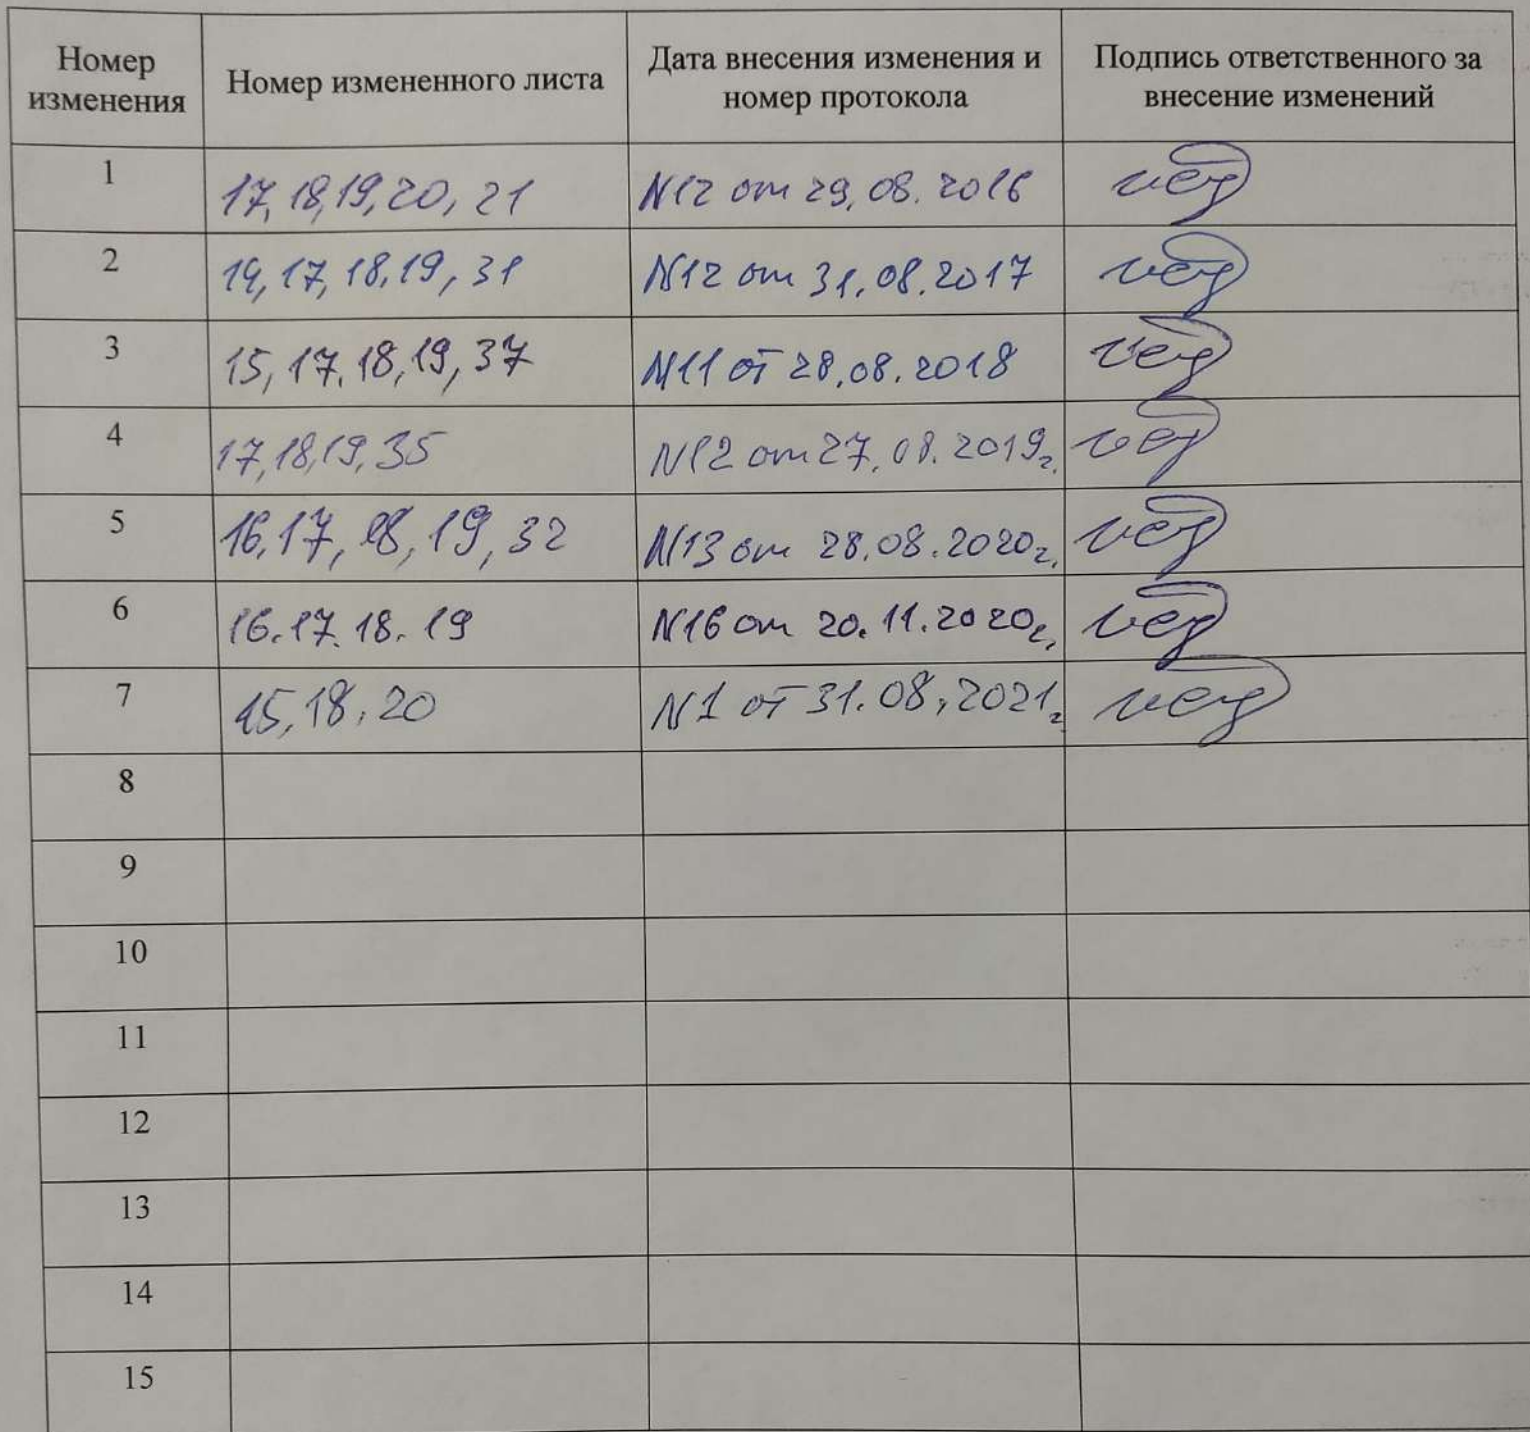 Номер изменения Номер измененного листа Дата внесения изменения и номер протокола Подпись ответственного за внесение изменений
1 17, 18, 19, 20, 21 N12 от 29.08.2016
2 14, 17, 18, 19, 31 N12 от 31.08.2017
3 15, 17, 18, 19, 37 N11 от 28.08.2018
4 17, 18, 19, 35 N12 от 27.08.2019г.
5 16, 17, 18, 19, 32 N13 от 28.08.2020г.
6 16. 17. 18. 19 N16 от 20.11.2020г.
7 15, 18, 20 N1 от 31.08.2021г.
8
9
10
11
12
13
14
15